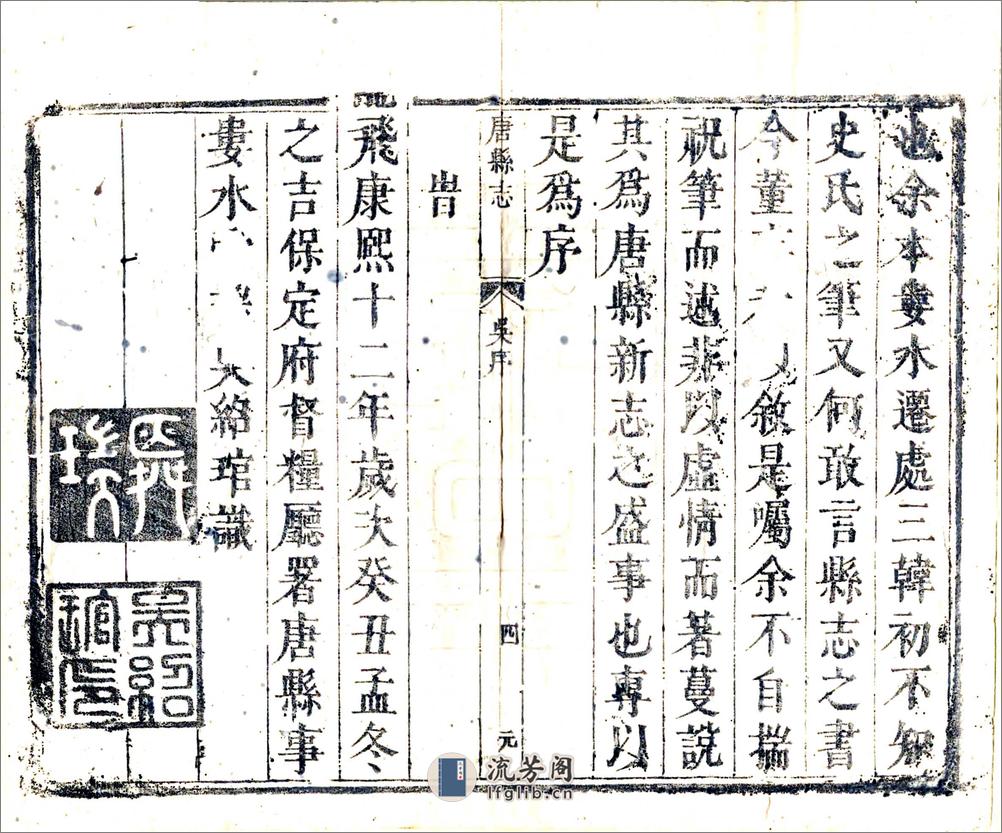 也余本婁水遷處三韓初不知
史氏之筆又何敢言縣志之書
今董敘是囑余不自揣
祝筆而述非以虛情而著蔓說
其爲唐縣新志之盛事也專以
是爲序
唐縣志
吳序
四
元
旹
龍
飛康熙十二年歲次癸丑孟冬
之吉保定府督糧廳署唐縣事
婁水吳紹琯識
吳紹琯印
流芳阁
lfglib.cn